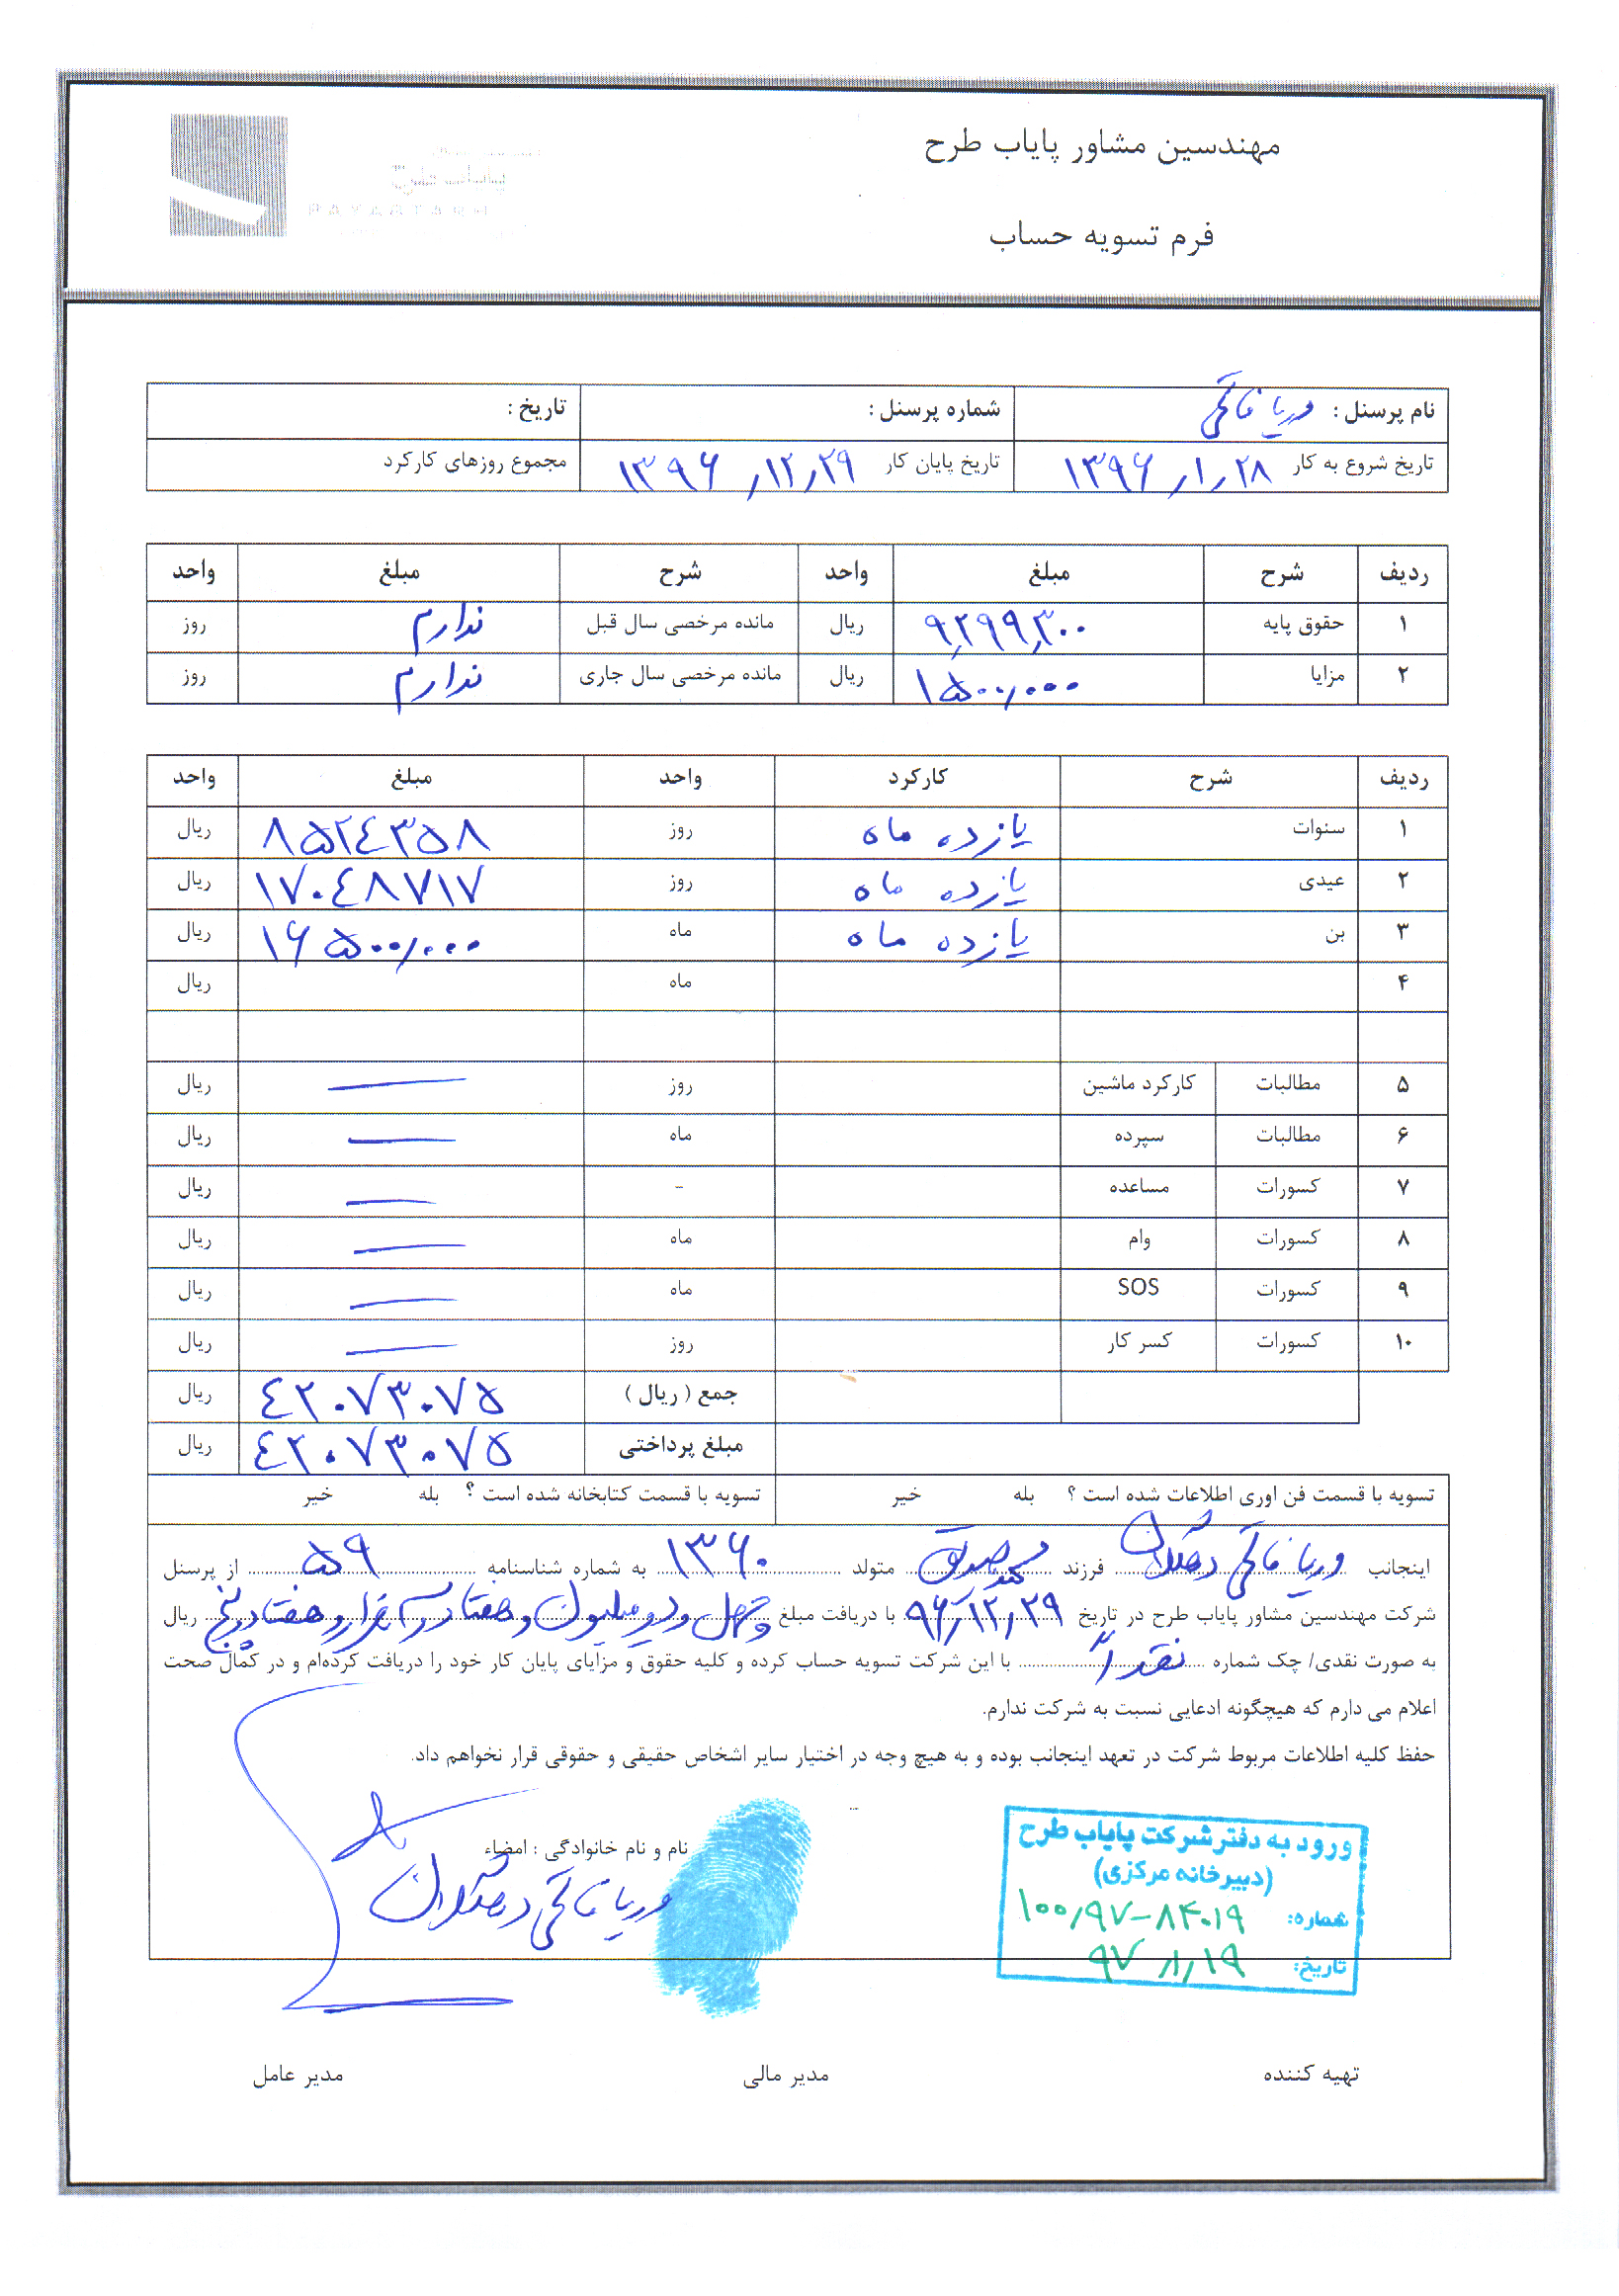 مهندسین مشاور پایاب طرح
فرم تسویه حساب
نام پرسنل : وریا فاتحی شماره پرسنل : تاریخ :
تاریخ شروع به کار ۱۳۹۶/۱/۲۸ تاریخ پایان کار ۱۳۹۶/۱۲/۲۹ مجموع روزهای کارکرد
ردیف شرح مبلغ واحد شرح مبلغ واحد
۱ حقوق پایه ۹,۲۹۹,۳۰۰ ریال مانده مرخصی سال قبل ندارم روز
۲ مزایا ۱۵۰۰,۰۰۰ ریال مانده مرخصی سال جاری ندارم روز
ردیف شرح کارکرد واحد مبلغ واحد
۱ سنوات یازده ماه روز ۸۵۲٤۳۵۸ ریال
۲ عیدی یازده ماه روز ۱۷۰٤۸۷۱۷ ریال
۳ بن یازده ماه ماه ۱۶۵۰۰,۰۰۰ ریال
۴ ماه ریال
۵ مطالبات کارکرد ماشین روز — ریال
۶ مطالبات سپرده ماه — ریال
۷ کسورات مساعده - — ریال
۸ کسورات وام ماه — ریال
۹ کسورات SOS ماه — ریال
۱۰ کسورات کسر کار روز — ریال
جمع ( ریال ) ٤۲۰۷۳۰۷۵ ریال
مبلغ پرداختی ٤۲۰۷۳۰۷۵ ریال
تسویه با قسمت فن اوری اطلاعات شده است ؟ بله خیر تسویه با قسمت کتابخانه شده است ؟ بله خیر
اینجانب وریا فاتحی فرزند محمدصدیق متولد ۱۳۶۰ به شماره شناسنامه ۵۹ از پرسنل
شرکت مهندسین مشاور پایاب طرح در تاریخ ۹۶/۱۲/۲۹ با دریافت مبلغ چهل و دو میلیون و هفتاد و سه هزار و هفتاد و پنج ریال
به صورت نقدی/ چک شماره نقداً با این شرکت تسویه حساب کرده و کلیه حقوق و مزایای پایان کار خود را دریافت کرده‌ام و در کمال صحت
اعلام می دارم که هیچگونه ادعایی نسبت به شرکت ندارم.
حفظ کلیه اطلاعات مربوط شرکت در تعهد اینجانب بوده و به هیچ وجه در اختیار سایر اشخاص حقیقی و حقوقی قرار نخواهم داد.
نام و نام خانوادگی : امضاء
وریا فاتحی
ورود به دفتر شرکت پایاب طرح
(دبیرخانه مرکزی)
شماره: ۱۰۰/۹۷-۸۴۰۱۹
تاریخ: ۹۷/۱/۱۹
تهیه کننده مدیر مالی مدیر عامل